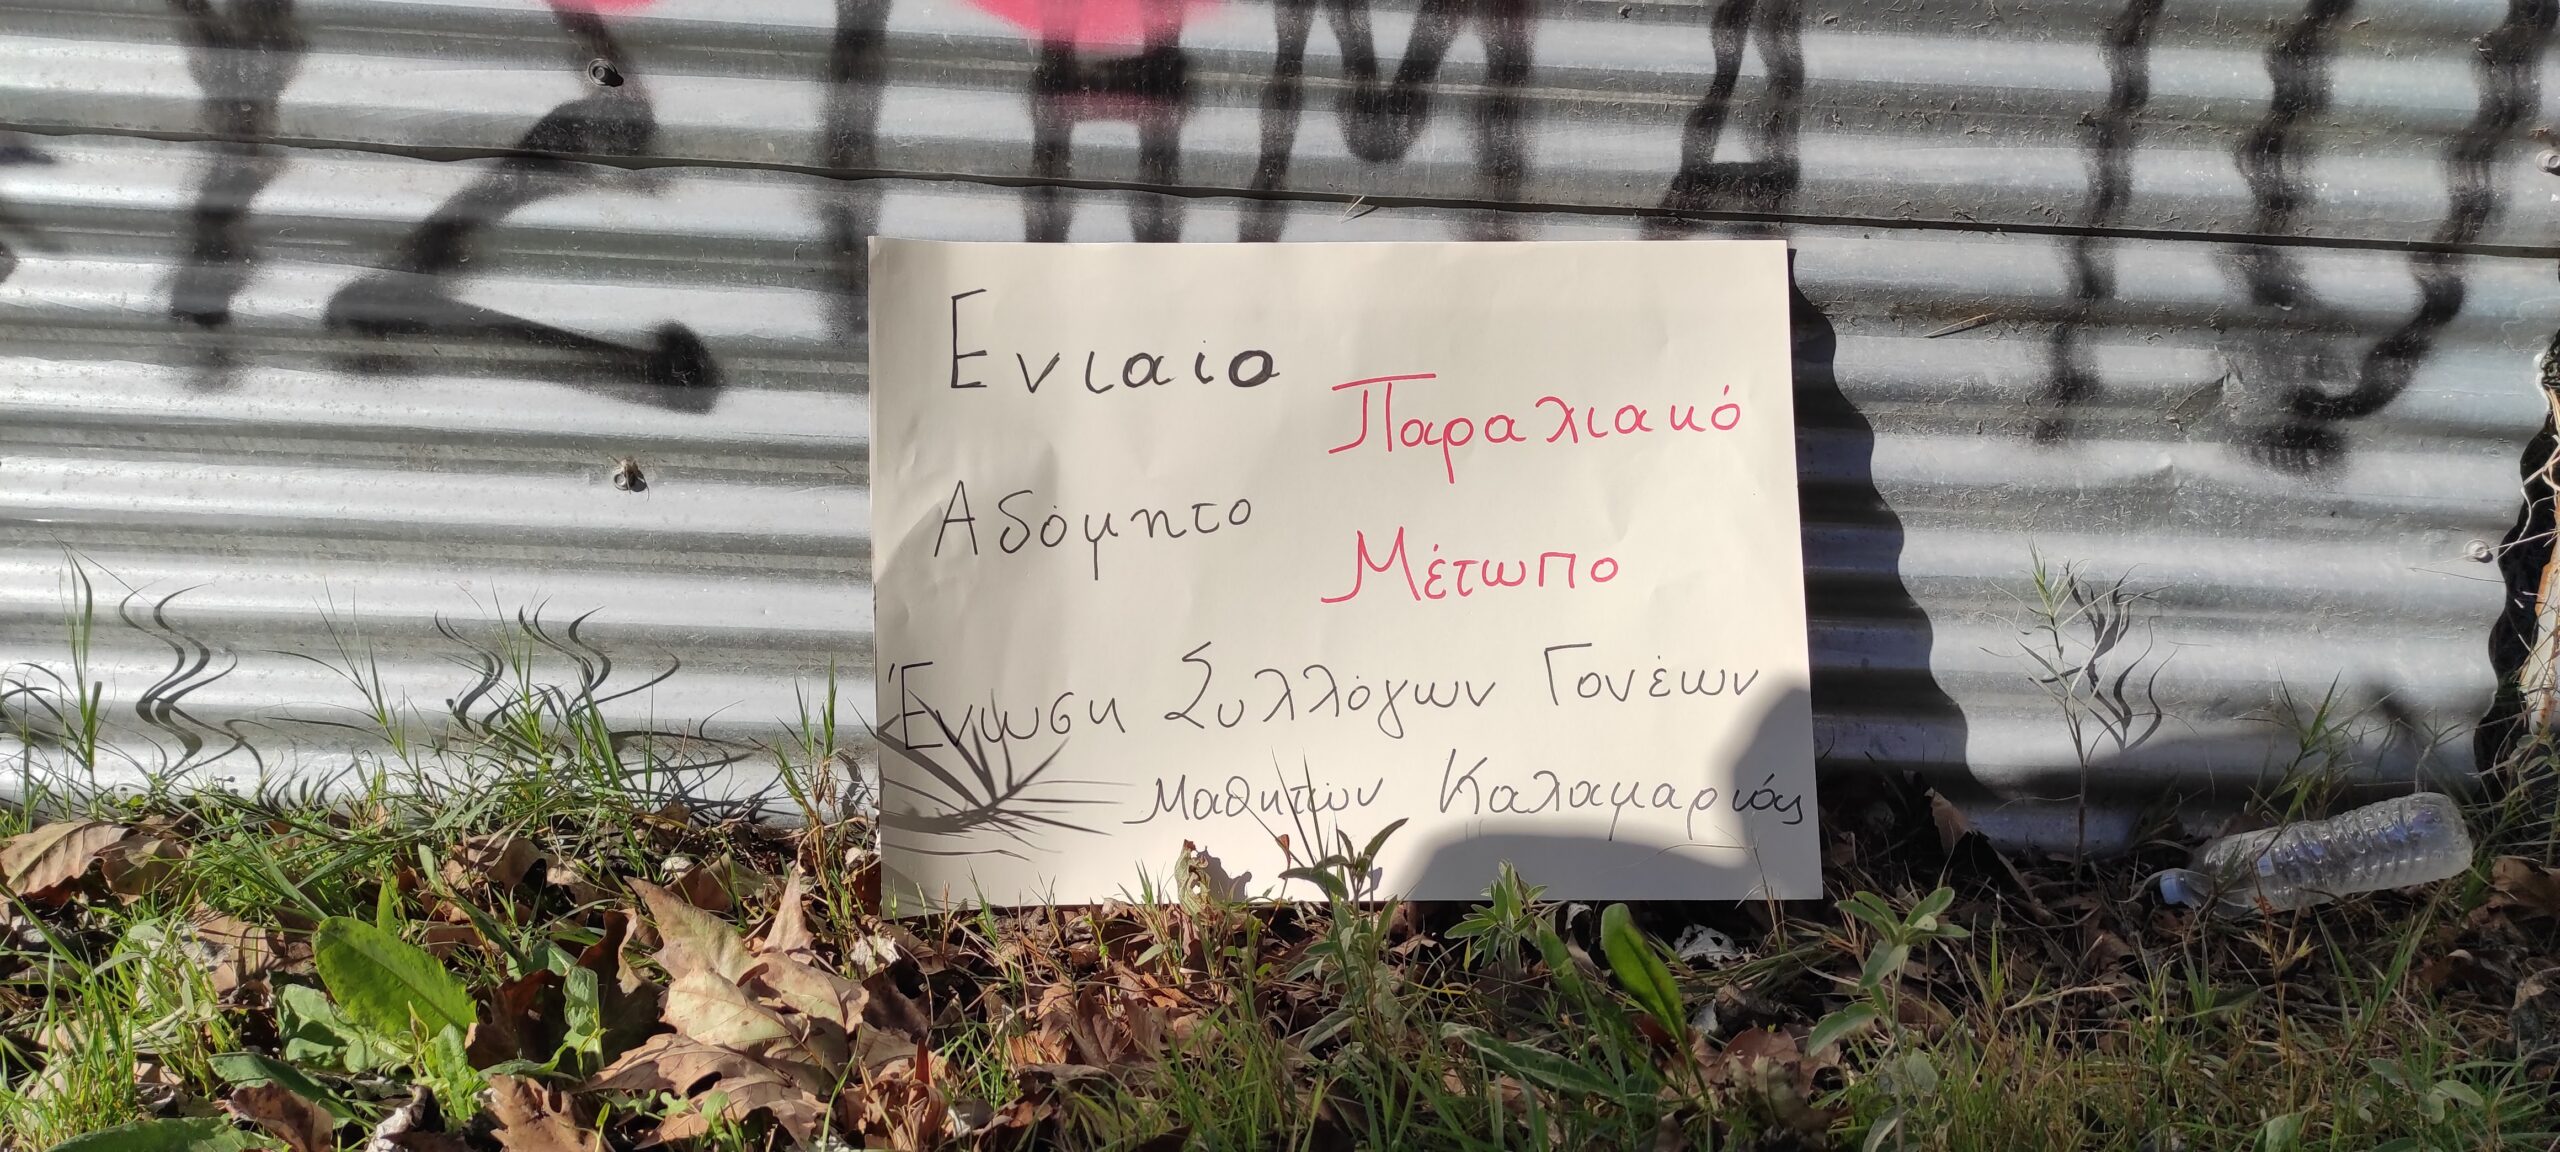 Ενιαίο
Παραλιακό
Αδόμητο
Μέτωπο
Ένωση Συλλόγων Γονέων
Μαθητών Καλαμαριάς